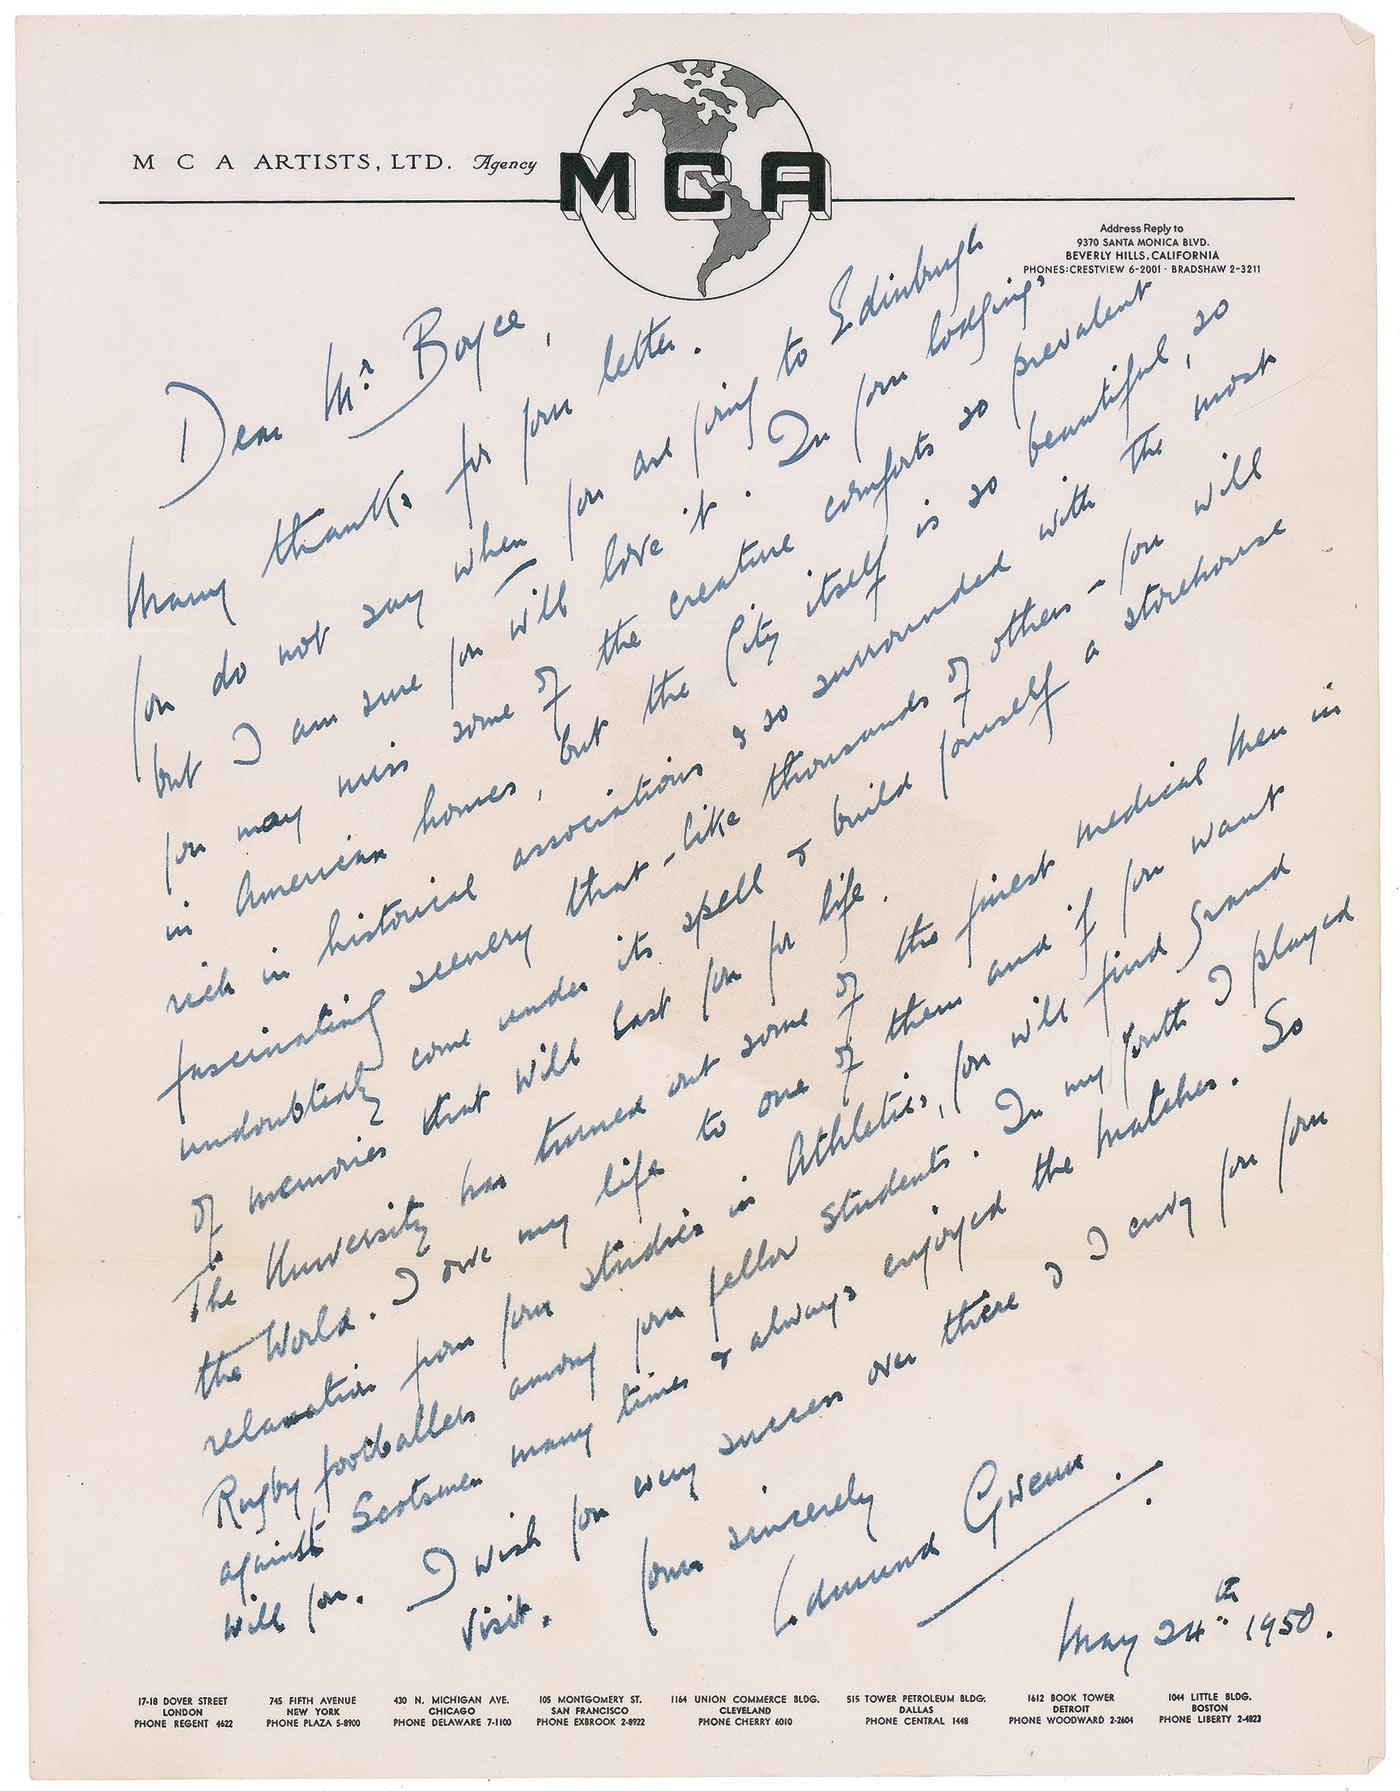 M C A ARTISTS, LTD. Agency
MCA
Address Reply to
9370 SANTA MONICA BLVD.
BEVERLY HILLS, CALIFORNIA
PHONES: CRESTVIEW 6-2001 · BRADSHAW 2-3211
Dear Mr Boyce,
Many thanks for your letter.
You do not say when you are going to Edinburgh
but I am sure you will love it. In your lodgings
you may miss some of the creature comforts so prevalent
in American homes, but the City itself is so beautiful, so
rich in historical associations & so surrounded with the most
fascinating scenery that - like thousands of others - you will
undoubtedly come under its spell & build yourself a storehouse
of memories that will last you for life.
The University has turned out some of the finest medical men in
the World. I owe my life to one of them and if you want
relaxation from your studies in Athletics, you will find Grand
Rugby footballers among your fellow students. In my youth I played
against Scotsmen many times & always enjoyed the matches. So
will you. I wish you every success over there & I envy you your
visit.
Yours sincerely
Edmund Gwenn.
May 24th 1950.
17-18 DOVER STREET
LONDON
PHONE REGENT 4622
745 FIFTH AVENUE
NEW YORK
PHONE PLAZA 5-8900
430 N. MICHIGAN AVE.
CHICAGO
PHONE DELAWARE 7-1100
105 MONTGOMERY ST.
SAN FRANCISCO
PHONE EXBROOK 2-8922
1164 UNION COMMERCE BLDG.
CLEVELAND
PHONE CHERRY 6010
515 TOWER PETROLEUM BLDG.
DALLAS
PHONE CENTRAL 1448
1612 BOOK TOWER
DETROIT
PHONE WOODWARD 2-2604
1044 LITTLE BLDG.
BOSTON
PHONE LIBERTY 2-4823